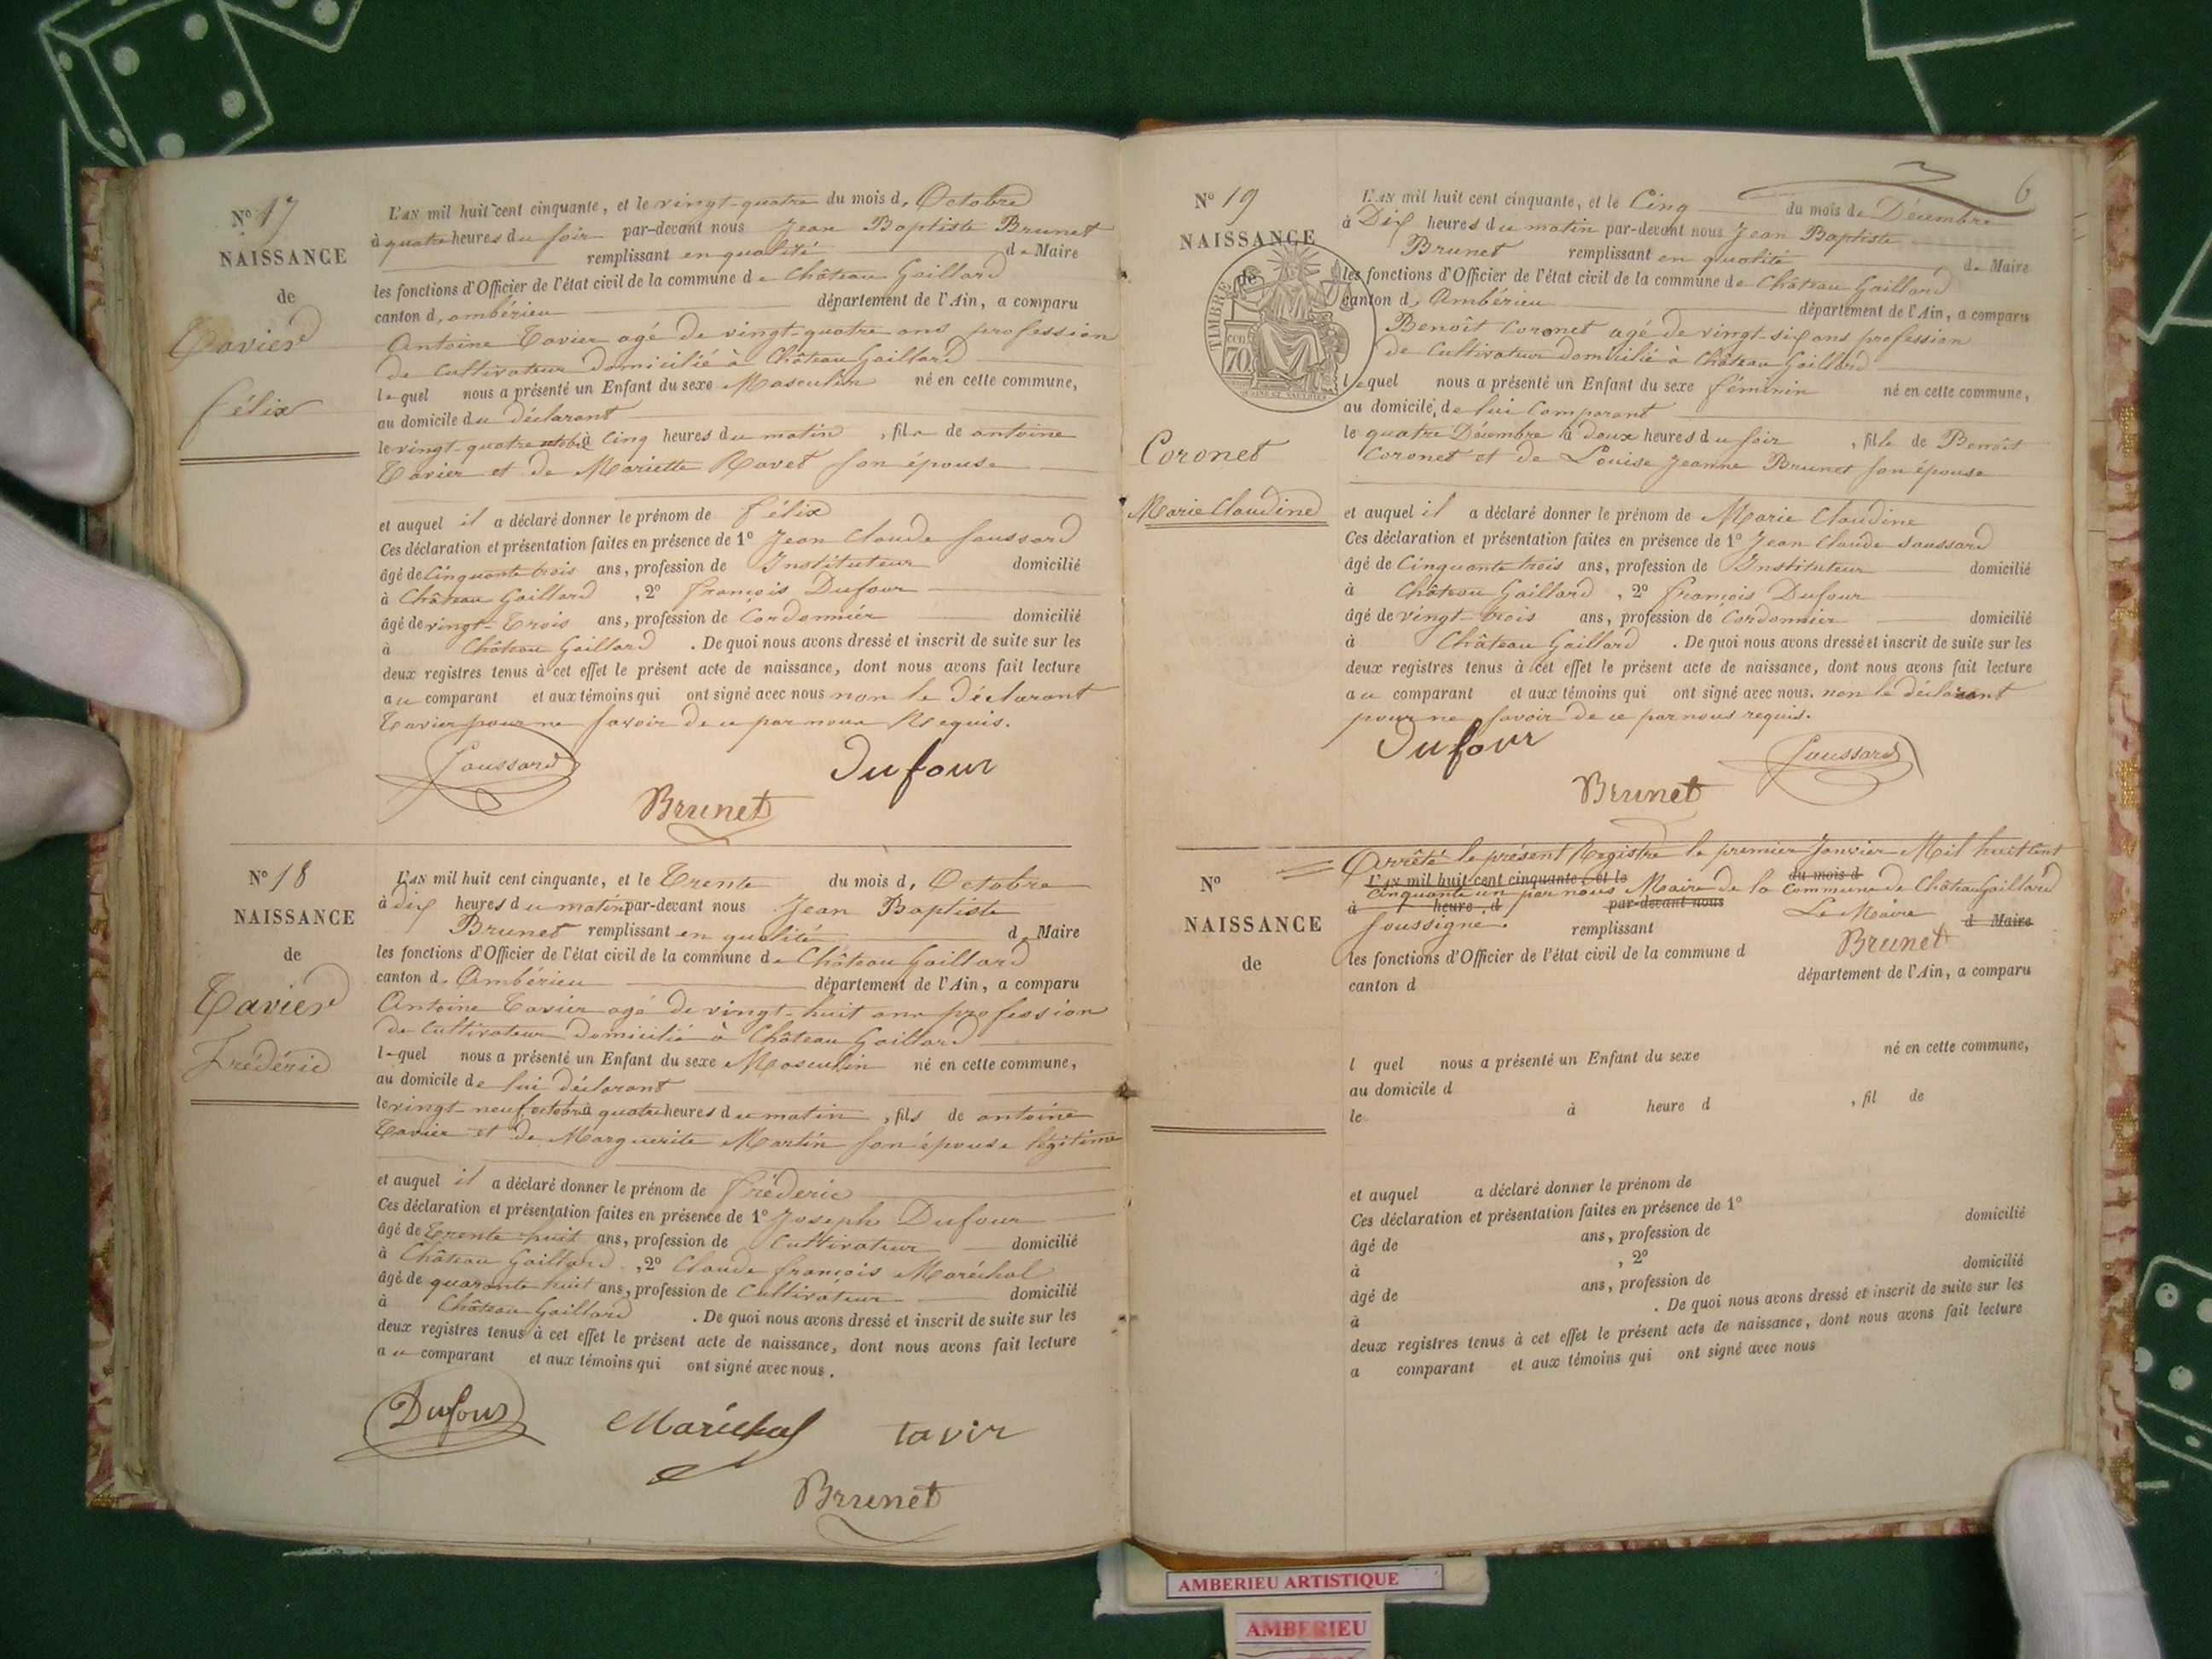 N° 17
NAISSANCE
de
Tavier
félix
L'AN mil huit cent cinquante, et le vingt-quatre du mois d, Octobre
à quatre heures du soir par-devant nous Jean Baptiste Brunet
remplissant en qualité de Maire
les fonctions d'Officier de l'état civil de la commune de Château Gaillard
canton d, ambérieu département de l'Ain, a comparu
Antoine Tavier agé de vingt-quatre ans profession
de Cultivateur domicilié à Château Gaillard
lequel nous a présenté un Enfant du sexe Masculin né en cette commune,
au domicile du déclarant
le vingt-quatre octobre à Cinq heures du matin, fils de antoine
Tavier et de Mariette Ravet son épouse
et auquel il a déclaré donner le prénom de félix
Ces déclaration et présentation faites en présence de 1° Jean Claude Saussard
âgé de Cinquante trois ans, profession de Instituteur domicilié
à Château Gaillard, 2° françois Dufour
âgé de vingt-Trois ans, profession de Cordonnier domicilié
à Château Gaillard. De quoi nous avons dressé et inscrit de suite sur les
deux registres tenus à cet effet le présent acte de naissance, dont nous avons fait lecture
au comparant et aux témoins qui ont signé avec nous non le Déclarant
Tavier pour ne savoir de ce par nous Requis.
Saussard
Dufour
Brunet
N° 18
NAISSANCE
de
Tavier
Frédéric
L'AN mil huit cent cinquante, et le Trente du mois d, Octobre
à dix heures du matin par-devant nous Jean Baptiste
Brunet remplissant en qualité de Maire
les fonctions d'Officier de l'état civil de la commune de Château Gaillard
canton d, Ambérieu département de l'Ain, a comparu
Antoine Tavier agé de vingt-huit ans profession
de Cultivateur domicilié à Château Gaillard
lequel nous a présenté un Enfant du sexe Masculin né en cette commune,
au domicile de lui déclarant
le vingt-neuf octobre à quatre heures du matin, fils de antoine
Tavier et de Marguerite Martin son épouse légitime
et auquel il a déclaré donner le prénom de frédéric
Ces déclaration et présentation faites en présence de 1° Joseph Dufour
âgé de Trente huit ans, profession de Cultivateur domicilié
à Château Gaillard, 2° Claude françois Maréchal
âgé de quarante huit ans, profession de Cultivateur domicilié
à Château Gaillard. De quoi nous avons dressé et inscrit de suite sur les
deux registres tenus à cet effet le présent acte de naissance, dont nous avons fait lecture
au comparant et aux témoins qui ont signé avec nous.
Dufour
Maréchal
tavir
Brunet
6
N° 19
NAISSANCE
de
TIMBRE
70
Coronet
Marie Claudine
L'AN mil huit cent cinquante, et le Cinq du mois de Décembre
à Dix heures du matin par-devant nous Jean Baptiste
Brunet remplissant en qualité de Maire
les fonctions d'Officier de l'état civil de la commune de Château Gaillard
canton d, Ambérieu département de l'Ain, a comparu
Benoît Coronet agé de vingt-six ans profession
de Cultivateur domicilié à Château Gaillard
lequel nous a présenté un Enfant du sexe féminin né en cette commune,
au domicile de lui Comparant
le quatre Décembre à deux heures du soir, fille de Benoît
Coronet et de Louise Jeanne Brunet son épouse
et auquel il a déclaré donner le prénom de Marie Claudine
Ces déclaration et présentation faites en présence de 1° Jean Claude Saussard
âgé de Cinquante trois ans, profession de Instituteur domicilié
à Château Gaillard, 2° françois Dufour
âgé de vingt-trois ans, profession de Cordonnier domicilié
à Château Gaillard. De quoi nous avons dressé et inscrit de suite sur les
deux registres tenus à cet effet le présent acte de naissance, dont nous avons fait lecture
au comparant et aux témoins qui ont signé avec nous. non le déclarant
pour ne savoir de ce par nous requis.
Dufour
Saussard
Brunet
N°
NAISSANCE
de
Arrêté le présent Registre le premier Janvier Mil huit Cent
L'AN mil huit cent cinquante, et le du mois d
Cinquante un par nous Maire de la Commune de Château Gaillard
à heure d par-devant nous
soussigné. Le Maire
remplissant d Maire
Brunet
les fonctions d'Officier de l'état civil de la commune d
canton d département de l'Ain, a comparu
l quel nous a présenté un Enfant du sexe né en cette commune,
au domicile d
le à heure d , fil de
et auquel a déclaré donner le prénom de
Ces déclaration et présentation faites en présence de 1°
âgé de ans, profession de domicilié
à , 2°
âgé de ans, profession de domicilié
à . De quoi nous avons dressé et inscrit de suite sur les
deux registres tenus à cet effet le présent acte de naissance, dont nous avons fait lecture
a comparant et aux témoins qui ont signé avec nous
AMBERIEU ARTISTIQUE
AMBERIEU